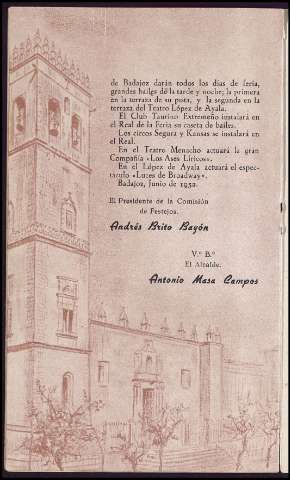 de Badajoz darán todos los días de feria,
grandes bailes de la tarde y noche; la primera
en la terraza de su pista, y la segunda en la
terraza del Teatro López de Ayala.
El Club Taurino Extremeño instalará en
el Real de la Feria su caseta de bailes.
Los circos Segura y Kansas se instalará en
el Real.
En el Teatro Menacho actuará la gran
Compañía «Los Ases Líricos».
En el López de Ayala actuará el espec-
táculo «Luces de Broadway».
Badajoz, Junio de 1952.
El Presidente de la Comisión
de Festejos,
Andrés Brito Bayón
V.º B.º
El Alcalde,
Antonio Masa Campos